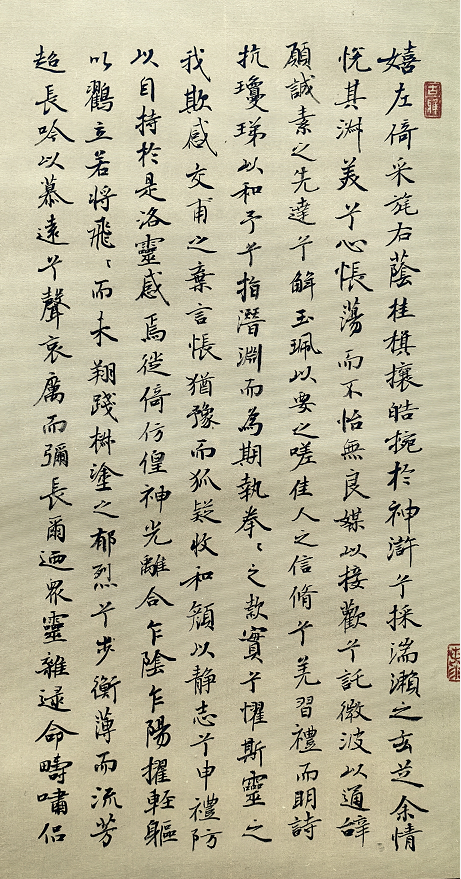 嬉左倚采旄右蔭桂旗攘皓捥於神滸兮採湍瀨之玄芝余情
悅其淑美兮心悵蕩而不怡無良媒以接歡兮託微波以通辭
願誠素之先達兮解玉珮以要之嗟佳人之信脩兮羌習禮而明詩
抗瓊珶以和予兮指潛淵而為期執拳〻之款實兮懼斯靈之
我欺感交甫之棄言悵猶豫而狐疑收和顏以靜志兮申禮防
以自持於是洛靈感焉徙倚仿偟神光離合乍陰乍陽擢輕軀
以鸛立若將飛〻而未翔踐椒塗之郁烈兮步衡薄而流芳
超長吟以慕遠兮聲哀厲而彌長爾迺眾靈雜遝命疇嘯侶
古雅